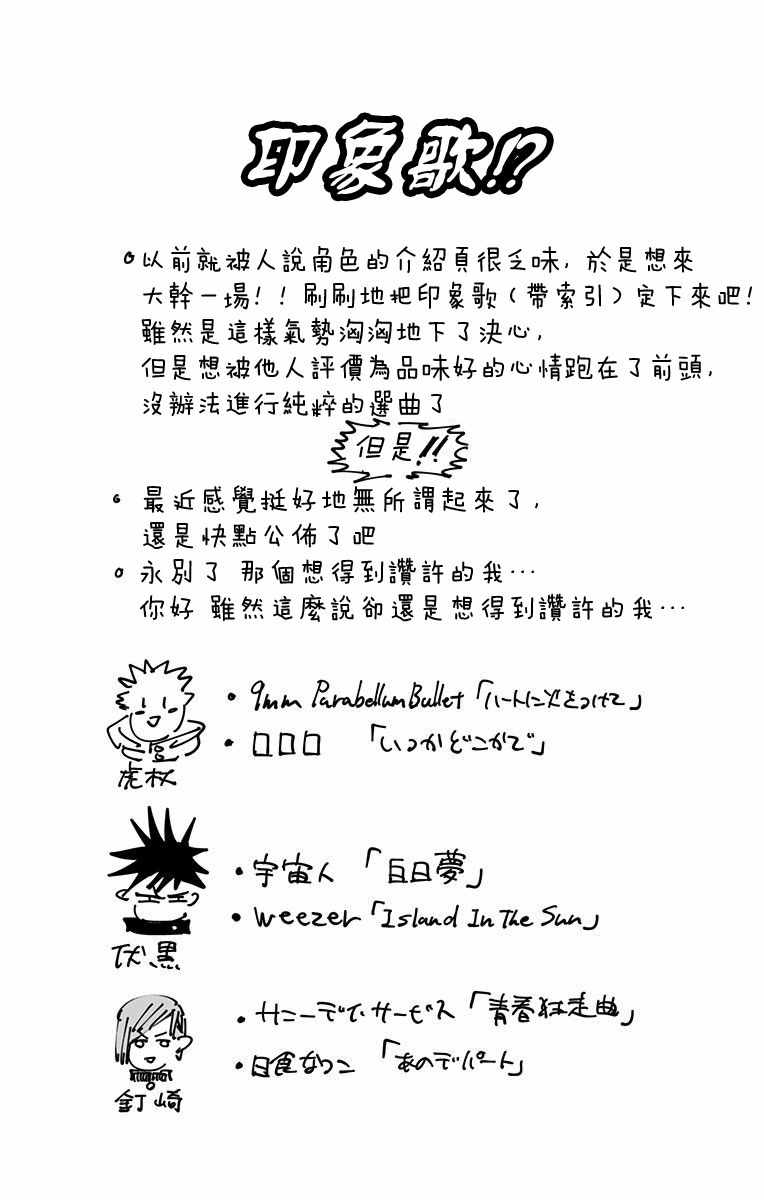 印象歌!?
• 以前就被人說角色的介紹頁很乏味, 於是想來
大幹一場!! 刷刷地把印象歌(帶索引)定下來吧!
雖然是這樣氣勢洶洶地下了決心,
但是想被他人評價為品味好的心情跑在了前頭,
沒辦法進行純粹的選曲了
但是!!
• 最近感覺挺好地無所謂起來了,
還是快點公佈了吧
• 永別了 那個想得到讚許的我…
你好 雖然這麼說卻還是想得到讚許的我…
• 9mm Parabellum Bullet 「ハートに火をつけて」
• 口口口 「いつかどこかで」
虎杖
• 宇宙人 「白日夢」
• weezer 「Island In The Sun」
伏黒
• サニーデイ・サービス 「青春狂走曲」
• 日食なつこ 「あのデパート」
釘崎